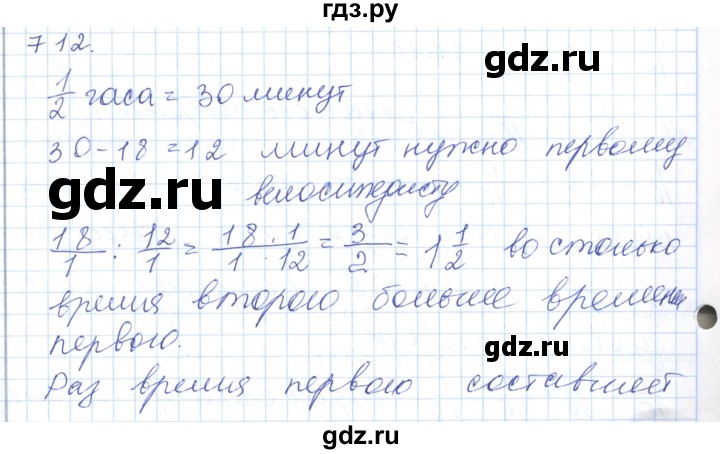 гдз.ру
712.
gdz.ru
1/2 часа = 30 минут
gdz.ru
30-18=12 минут нужно первому
gdz.ru
велосипедисту
gdz.ru
18/1 : 12/1 = 18·1/1·12 = 3/2 = 1 1/2 во столько
время второго больше времени
gdz.ru
первого.
gdz.ru
Раз время первого составляет
gdz.ru